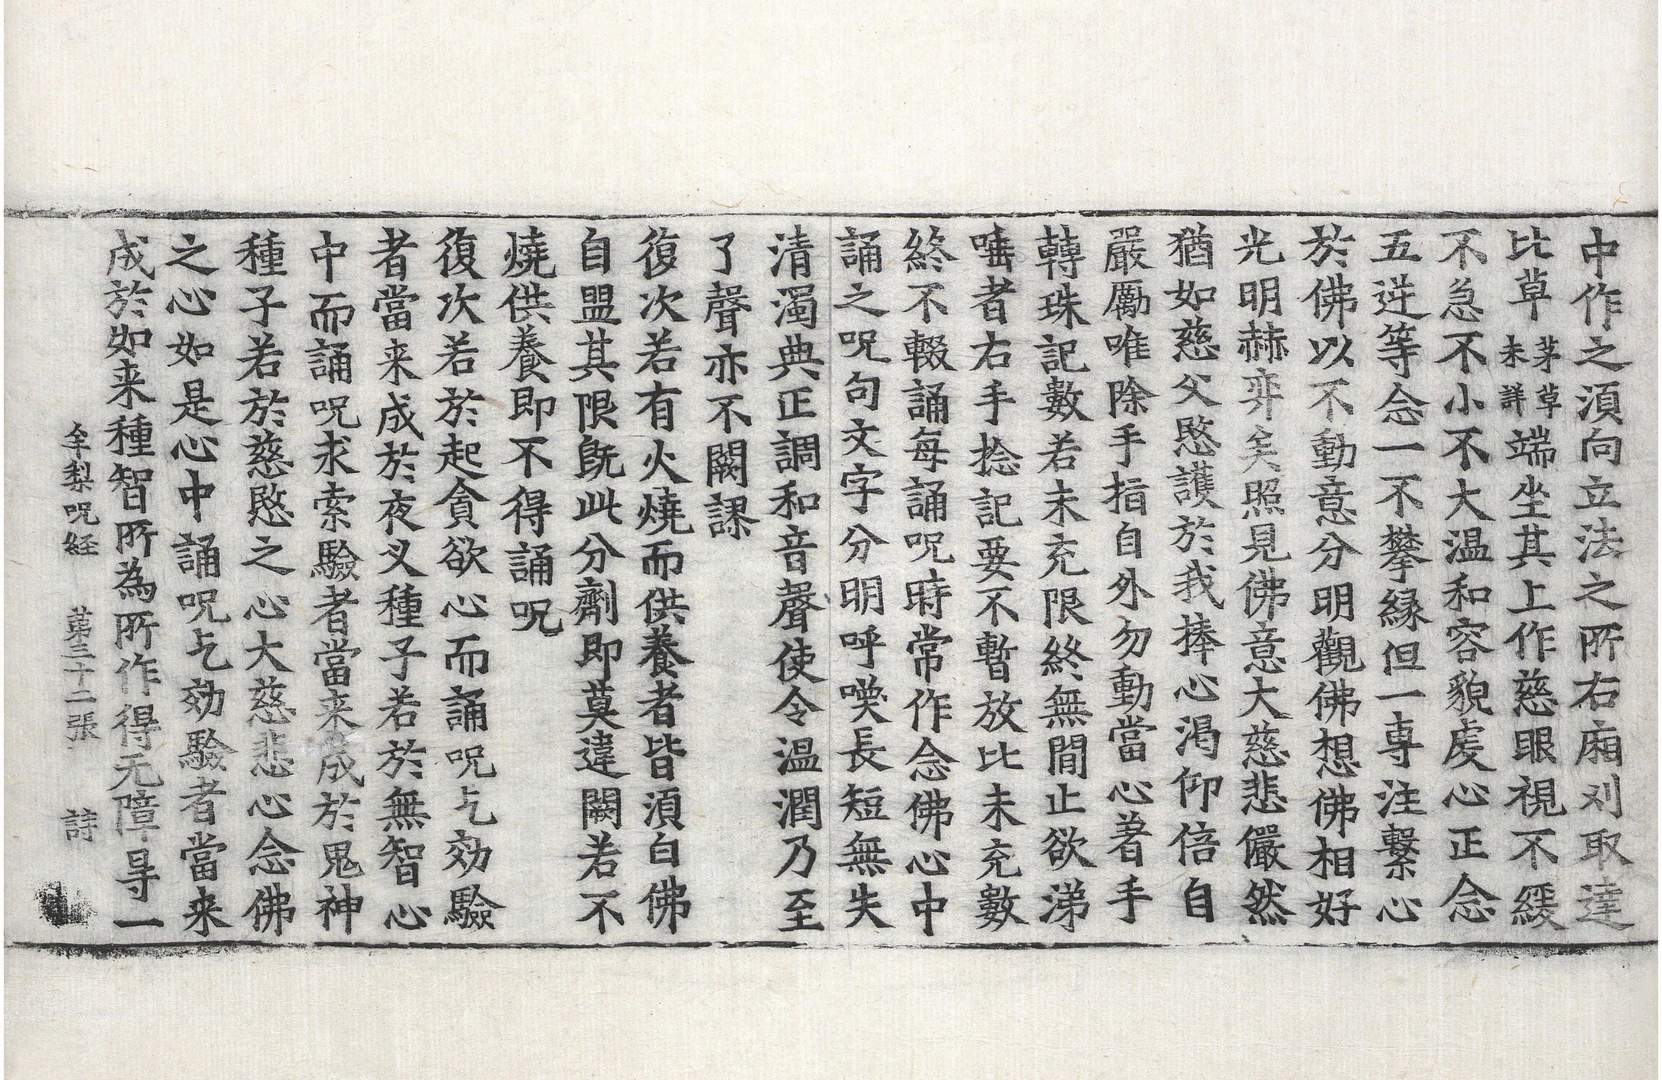 中作之湏向立法之所右廂刈取達
比草茅草未詳端坐其上作慈眼視不緩
不急不小不大温和容貌䖏心正念
五逆等念一不攀緣但一專注繫心
於佛以不動意分明觀佛想佛相好
光明赫弈矣照見佛意大慈悲儼然
猶如慈父愍護於我捧心渴仰倍自
嚴勵唯除手指自外勿動當心著手
轉珠記數若未充限終無間止欲涕
唾者右手捻記要不暫放比未充數
終不輟誦每誦呪時常作念佛心中
誦之呪句文字分明呼喚長短無失
清濁典正調和音聲使令温潤乃至
了聲亦不闕謬
復次若有火燒而供養者皆湏白佛
自盟其限旣此分劑即莫違闕若不
燒供養即不得誦呪
復次若於起貪欲心而誦呪乞効驗
者當来成於夜叉種子若於無智心
中而誦呪求索驗者當来成於鬼神
種子若於慈愍之心大慈悲心念佛
之心如是心中誦呪乞効驗者當来
成於如来種智所為所作得无障㝵一
牟梨呪経　苐三十二張　詩